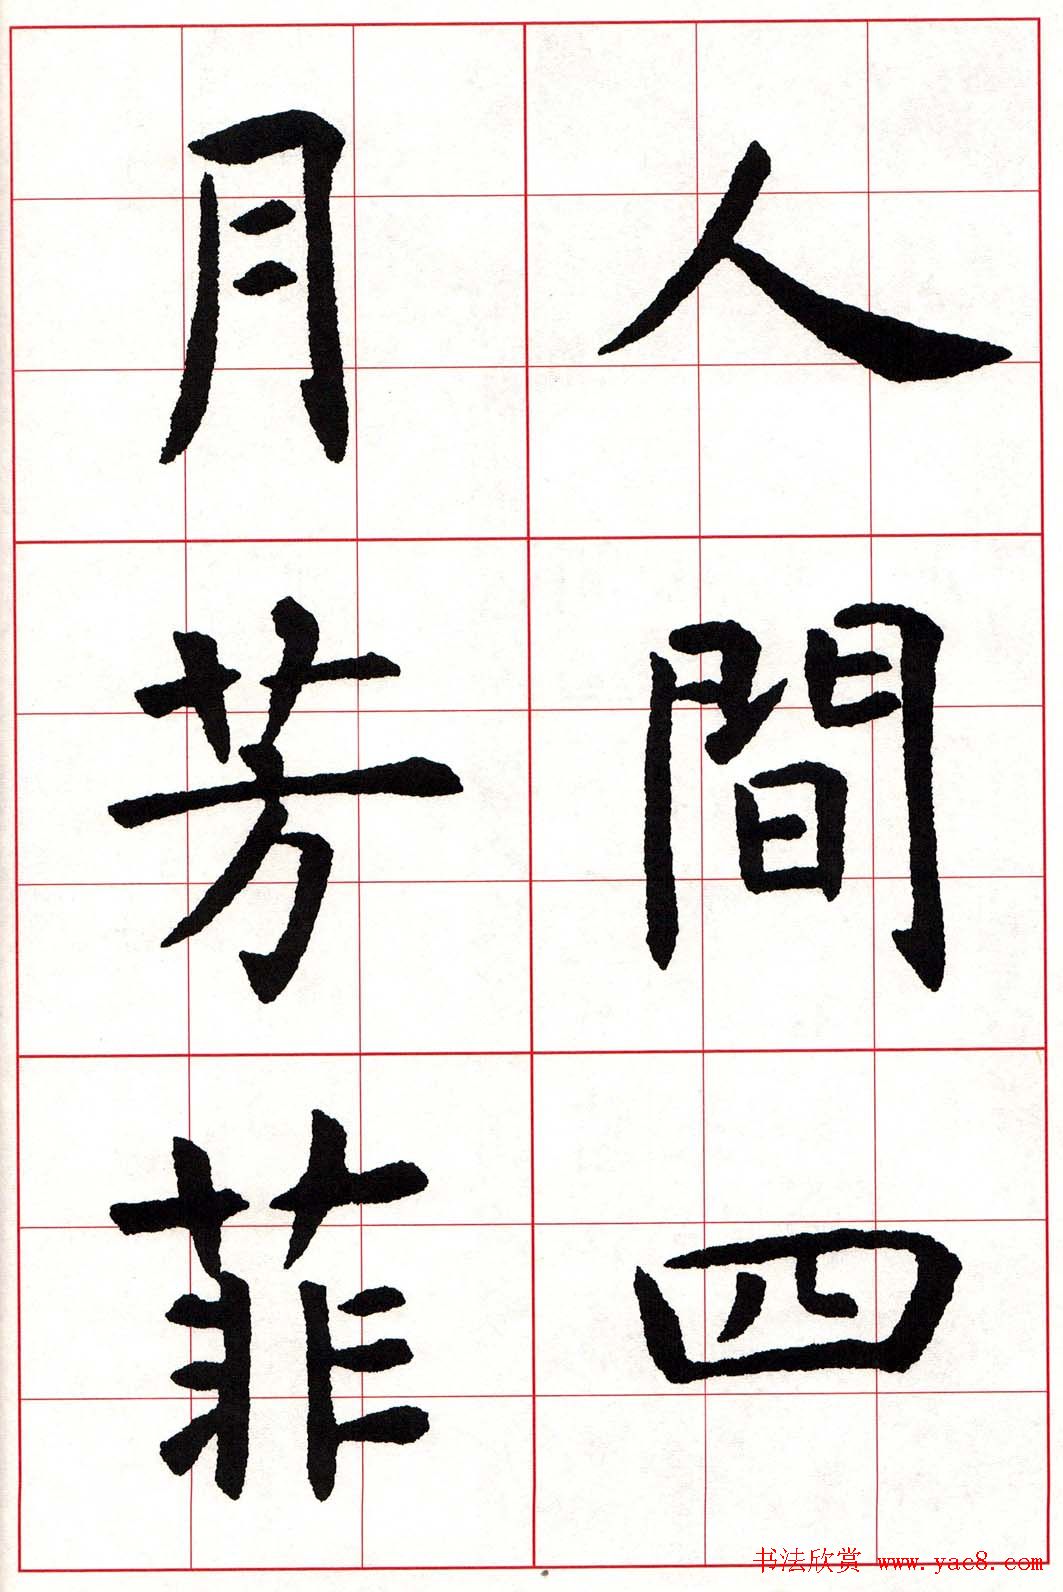 人間四
月芳菲
书法欣赏 www.yac8.com